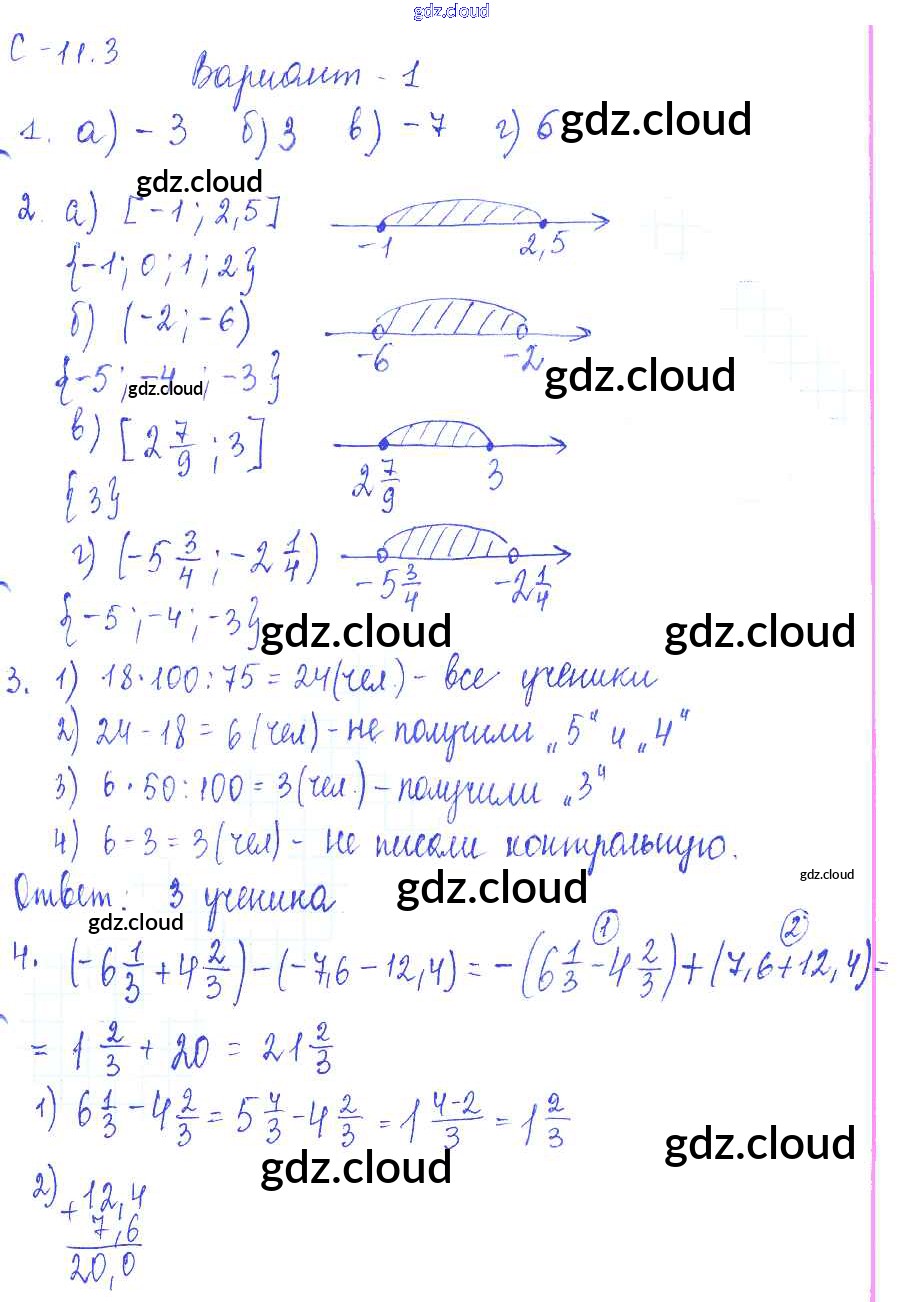 gdz.cloud
С-11.3
Вариант - 1
1. а) -3 б) 3 в) -7 г) 6 gdz.cloud
gdz.cloud
2. а) [-1; 2,5] -1 2,5
{-1; 0; 1; 2}
б) (-2; -6) -6 -2
gdz.cloud
{-5; -4; -3} gdz.cloud
в) [2 7/9; 3] 2 7/9 3
{3}
г) (-5 3/4; -2 1/4) -5 3/4 -2 1/4
{-5; -4; -3} gdz.cloud gdz.cloud
3. 1) 18·100:75 = 24 (чел.) - все ученики
2) 24 - 18 = 6 (чел) - не получили „5“ и „4“
3) 6·50:100 = 3 (чел.) - получили „3“
4) 6 - 3 = 3 (чел) - не писали контрольную.
gdz.cloud
Ответ: 3 ученика gdz.cloud
gdz.cloud
1 2
4. (-6 1/3 + 4 2/3) - (-7,6 - 12,4) = -(6 1/3 - 4 2/3) + (7,6 + 12,4) =
= 1 2/3 + 20 = 21 2/3
1) 6 1/3 - 4 2/3 = 5 4/3 - 4 2/3 = 1 4-2/3 = 1 2/3
gdz.cloud gdz.cloud
2) + 12,4
7,6
20,0